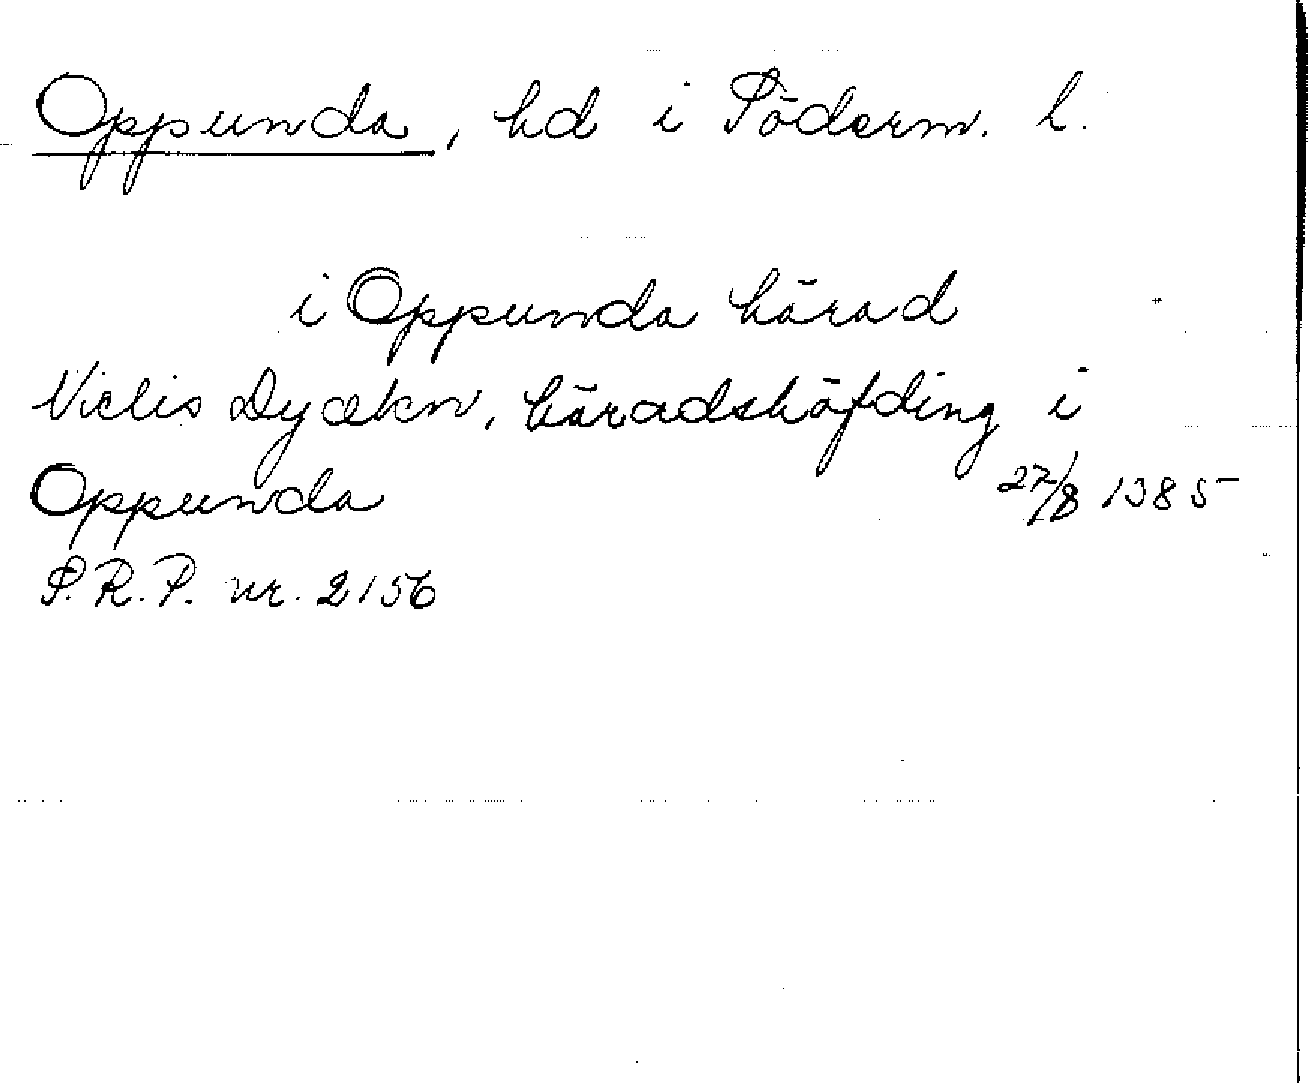 Oppunda, hd i Söderm. l.
i Oppunda härad
Niclis Dyækn, häradshöfding i
Oppunda 27/8 1385
S.R.P. nr. 2156